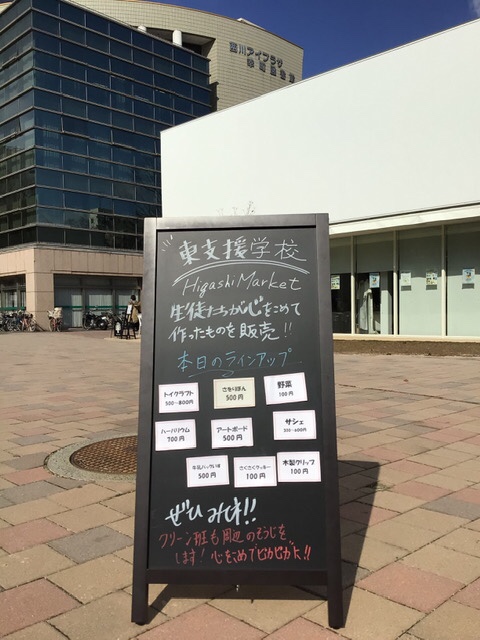 東支援学校
Higashi Market
生徒たちが心をこめて
作ったものを販売!!
本日のラインアップ
トイクラフト
500~800円
さをりぽん
500円
野菜
100円
ハーバリウム
700円
アートボード
500円
サシェ
300~600円
500円
さくさくラッキー
100円
木製クリップ
100円
ぜひみてね!!
クリーン班も周辺のそうじを
します!心をこめてピカピカに!!